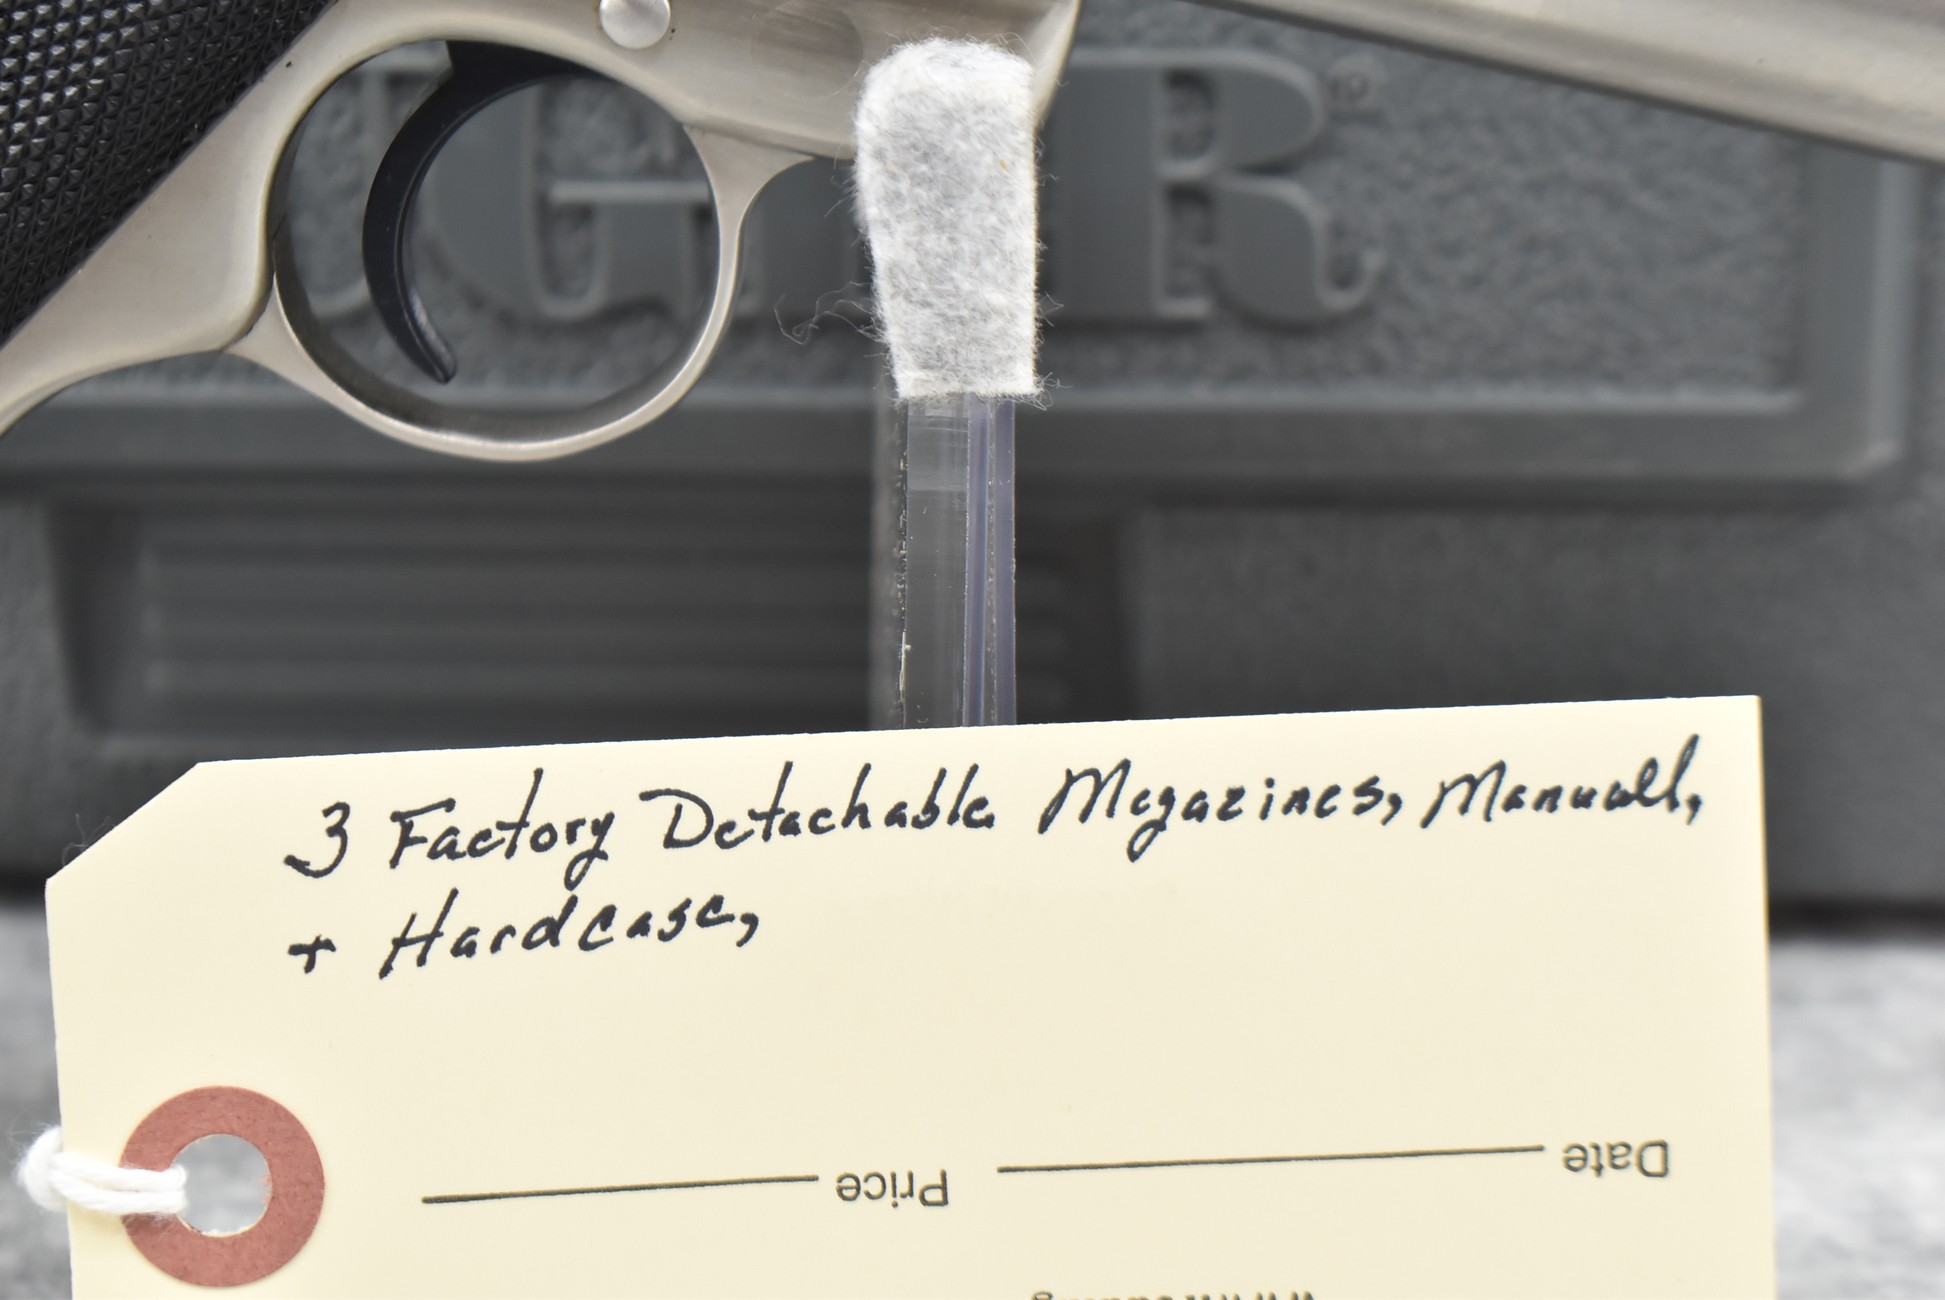 RUGER®
3 Factory Detachable Magazines, Manuall,
+ Hardcase,
Price Date